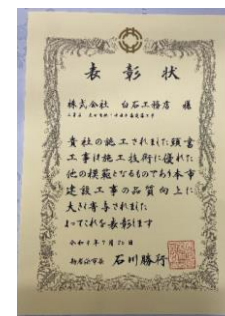 表彰状
株式会社 白石工務店 様
貴社の施工されました頭書
工事は施工技術に優れた
他の模範となるものであり本市
建設工事の品質向上に
大きく寄与されました
よってこれを表彰します
石川勝行